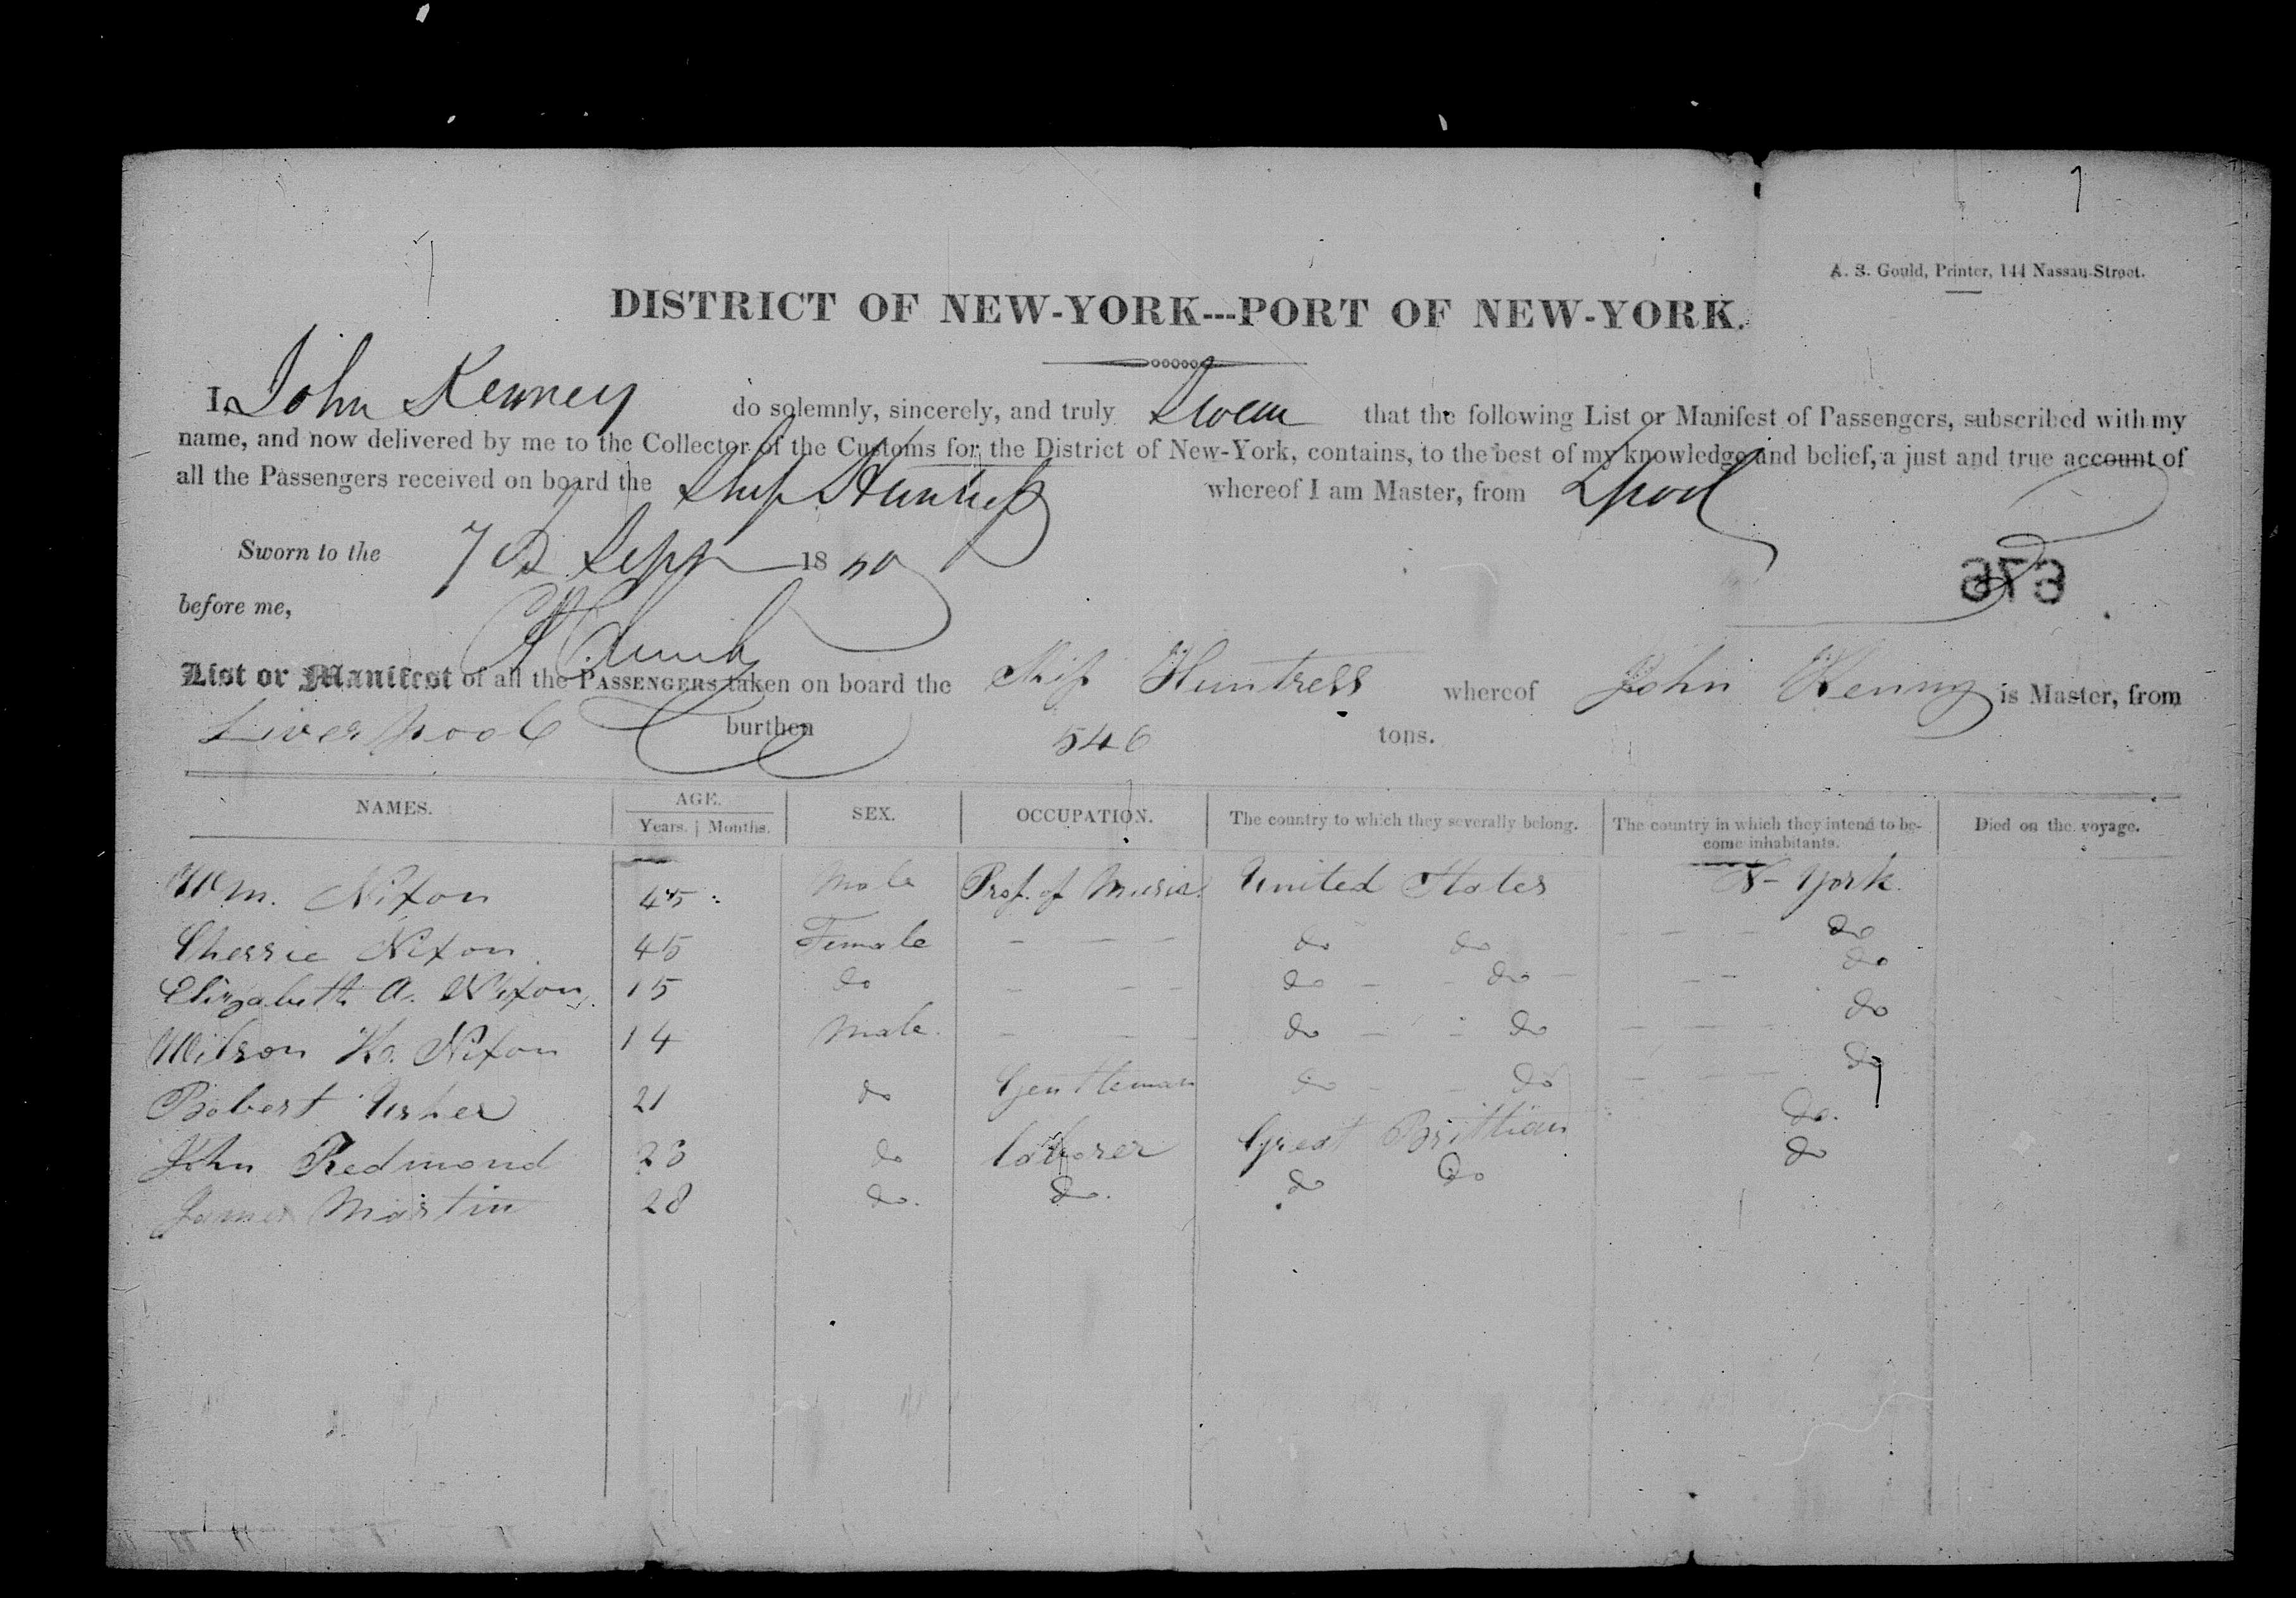 A. S. Gould, Printer, 144 Nassau-Street.
DISTRICT OF NEW-YORK---PORT OF NEW-YORK.
I, John Kenney do solemnly, sincerely, and truly Swear that the following List or Manifest of Passengers, subscribed with my
name, and now delivered by me to the Collector of the Customs for the District of New-York, contains, to the best of my knowledge and belief, a just and true account of
all the Passengers received on board the Ship Huntress whereof I am Master, from Lpool
Sworn to the 7 Sepr 1850
before me,
List or Manifest of all the PASSENGERS taken on board the Ship Huntress whereof John Kenny is Master, from
Liverpool burthen 546 tons.
NAMES. AGE. Years. Months. SEX. OCCUPATION. The country to which they severally belong. The country in which they intend to become inhabitants. Died on the voyage.
Wm. Nixon 45 Male Prof. of Music United States N- York.
Cherrie Nixon. 45 Female - - - do do - - - do
Elizabeth A. Nixon. 15 do - - - do - - do - - - do
Wilson K. Nixon 14 Male. - - - do - - do - - - do
Robert Usher 21 do Gentleman do - - do - - - do
John Redmond 23 do laborer Great Brittian do.
James Martin 28 do. do. do do do